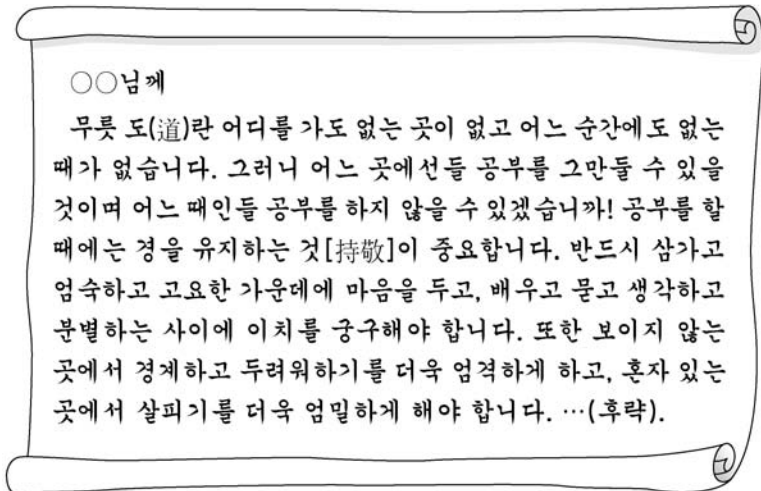 ○○님께
무릇 도(道)란 어디를 가도 없는 곳이 없고 어느 순간에도 없는
때가 없습니다. 그러니 어느 곳에선들 공부를 그만둘 수 있을
것이며 어느 때인들 공부를 하지 않을 수 있겠습니까! 공부를 할
때에는 경을 유지하는 것[持敬]이 중요합니다. 반드시 삼가고
엄숙하고 고요한 가운데에 마음을 두고, 배우고 묻고 생각하고
분별하는 사이에 이치를 궁구해야 합니다. 또한 보이지 않는
곳에서 경계하고 두려워하기를 더욱 엄격하게 하고, 혼자 있는
곳에서 살피기를 더욱 엄밀하게 해야 합니다. …(후략).